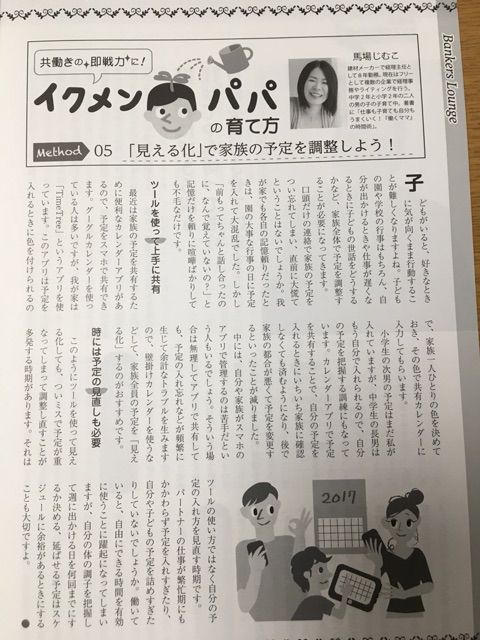 Bankers Lounge
共働きの即戦力に!
イクメンパパ
の育て方
馬場じむこ
建材メーカーで経理主任と
して8年勤務。現在はフリー
として複数の企業で経理事
務やライティングを行う。
中学2年と小学2年の二人
の男の子の子育て中。著書
に「仕事も子育ても自分も
うまくいく!「働くママ」
の時間術」。
Method 05 「見える化」で家族の予定を調整しよう!
子どもがいると、好きなとき
に気が向くまま行動するこ
とが難しくなりますよね。子ども
の園や学校の行事はもちろん、自
分が出かけるときや仕事が遅くな
るときに子どもの世話をどうする
かなど、家族全体で予定を調整す
ることが必要になってきます。
口頭だけの連絡で家族の予定を
つい忘れてしまい、直前に大慌て
ということはないでしょうか。我
が家でも各自の記憶頼りだったと
きは、園の大事な行事の日に予定
を入れて大混乱でした。しかし
「前もってちゃんと話し合ったの
に、なんで覚えていないの?」と
記憶だけを頼りに喧嘩ばかりして
も不毛なだけです。
ツールを使って上手に共有
最近は家族の予定を共有するた
めに便利なカレンダーアプリがあ
るので、予定をスマホで共有でき
ます。グーグルカレンダーを使っ
ている人は多いですが、我が家は
「TimeTree」というアプリを使
っています。このアプリは予定を
入れるときに色を付けられるの
で、家族一人ひとりの色を決めて
おき、その色で共有カレンダーに
入力してもらいます。
小学生の次男の予定はまだ私が
入れていますが、中学生の長男は
もう自分で入れられるので、自分
の予定を把握する訓練にもなって
います。カレンダーアプリで予定
を共有することで、自分の予定を
入れるときにいちいち家族に確認
しなくても済むようになり、後で
家族の都合が悪くて予定を変更す
るといったことが減りました。
中には、自分や家族がスマホの
アプリで管理するのは苦手だとい
う人もいるでしょう。そういう場
合は無理してアプリで共有して
も、予定の入れ忘れなどが頻繁に
生じて余計なトラブルを生みます
ので、壁掛けカレンダーを使うな
どして、家族全員の予定を「見え
る化」するのがおすすめです。
時には予定の見直しも必要
このようにツールを使って見え
る化しても、ついミスで予定が重
なってしまって調整し直すことが
多発する時期があります。それは
ツールの使い方ではなく自分の予
定の入れ方を見直す時期です。
パートナーの仕事が繁忙期にも
かかわらず予定を入れすぎたり、
自分や子どもの予定を詰めすぎた
りしていないでしょうか。働いて
いると、自由にできる時間を有効
に使うことに躍起になってしまい
ますが、自分の体の調子を把握し
て週に出かける日を何回までにす
るか決める、延ばせる予定はスケ
ジュールに余裕があるときにする
ことも大切ですよ。
2017